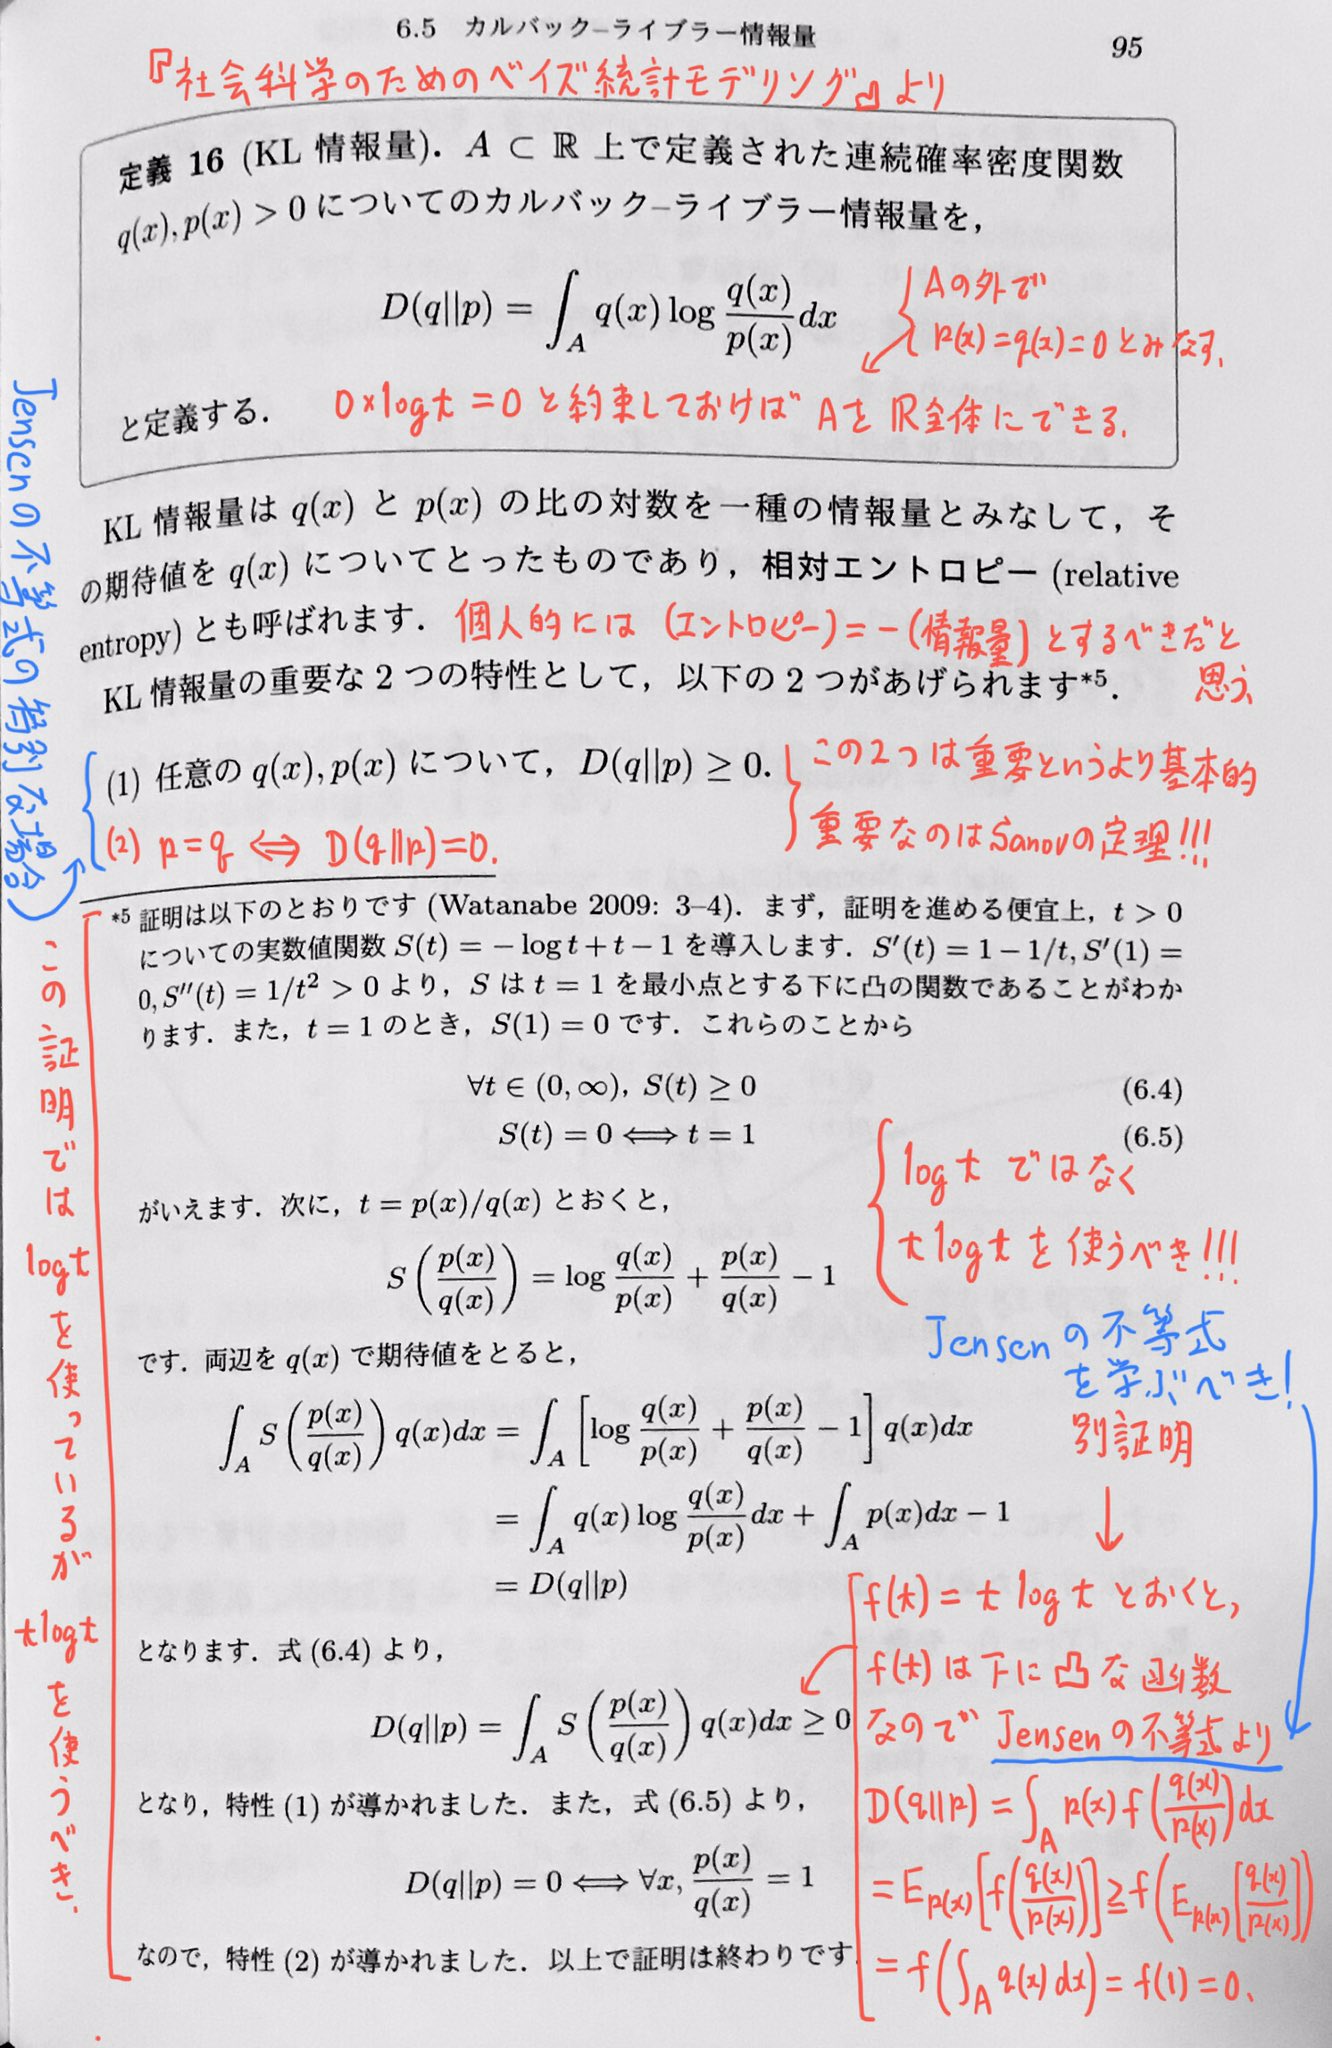 6.5 カルバック–ライブラー情報量
95
『社会科学のためのベイズ統計モデリング』より
定義 16 (KL 情報量). A ⊂ ℝ 上で定義された連続確率密度関数
q(x), p(x) > 0 についてのカルバック–ライブラー情報量を,
D(q||p) = ∫_A q(x) log q(x)/p(x) dx
Aの外で
p(x)=q(x)=0とみなす.
と定義する.
0×log t = 0 と約束しておけば Aを ℝ全体にできる.
KL 情報量は q(x) と p(x) の比の対数を一種の情報量とみなして, そ
の期待値を q(x) についてとったものであり, 相対エントロピー (relative
entropy) とも呼ばれます.
個人的には (エントロピー)=−(情報量) とするべきだと
思う.
KL 情報量の重要な 2 つの特性として, 以下の 2 つがあげられます*5.
(1) 任意の q(x), p(x) について, D(q||p) ≥ 0.
(2) p=q ⟺ D(q||p)=0.
この2つは重要というより基本的
重要なのはSanovの定理!!!
Jensenの不等式の特別な場合
*5 証明は以下のとおりです (Watanabe 2009: 3–4). まず, 証明を進める便宜上, t > 0
についての実数値関数 S(t) = − log t + t − 1 を導入します. S′(t) = 1 − 1/t, S′(1) =
0, S′′(t) = 1/t² > 0 より, S は t = 1 を最小点とする下に凸の関数であることがわか
ります. また, t = 1 のとき, S(1) = 0 です. これらのことから
∀t ∈ (0, ∞), S(t) ≥ 0 (6.4)
S(t) = 0 ⟺ t = 1 (6.5)
log t ではなく
t log t を使うべき!!!
がいえます. 次に, t = p(x)/q(x) とおくと,
S(p(x)/q(x)) = log q(x)/p(x) + p(x)/q(x) − 1
Jensenの不等式
を学ぶべき!
です. 両辺を q(x) で期待値をとると,
∫_A S(p(x)/q(x)) q(x)dx = ∫_A [log q(x)/p(x) + p(x)/q(x) − 1] q(x)dx
= ∫_A q(x) log q(x)/p(x) dx + ∫_A p(x)dx − 1
= D(q||p)
となります. 式 (6.4) より,
D(q||p) = ∫_A S(p(x)/q(x)) q(x)dx ≥ 0
となり, 特性 (1) が導かれました. また, 式 (6.5) より,
D(q||p) = 0 ⟺ ∀x, p(x)/q(x) = 1
なので, 特性 (2) が導かれました. 以上で証明は終わりです
この証明では log t を使っているが t log t を使うべき.
別証明
↓
f(t) = t log t とおくと,
f(t) は下に凸な函数
なので Jensenの不等式より
D(q||p) = ∫_A p(x) f(q(x)/p(x)) dx
= E_p(x)[f(q(x)/p(x))] ≧ f(E_p(x)[q(x)/p(x)])
= f(∫_A q(x) dx) = f(1) = 0.